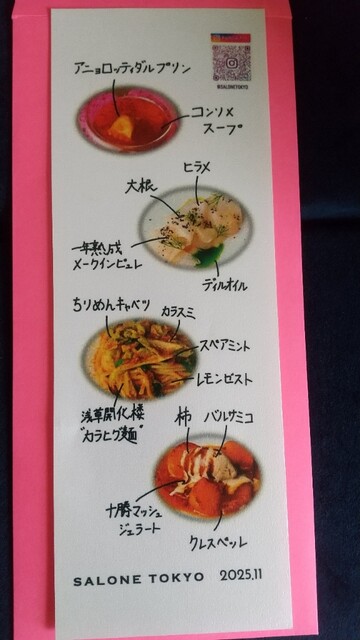 @SALONETOKYO
アニョロッティダルプリン
コンソメ
スープ
ヒラメ
大根
一年熟成
メークインピュレ
ディルオイル
ちりめんキャベツ
カラスミ
スペアミント
レモンゼスト
浅草開化楼
"カラヒグ麺"
柿
バルサミコ
十勝マッシュ
ジェラート
クレスペッレ
SALONE TOKYO 2025.11